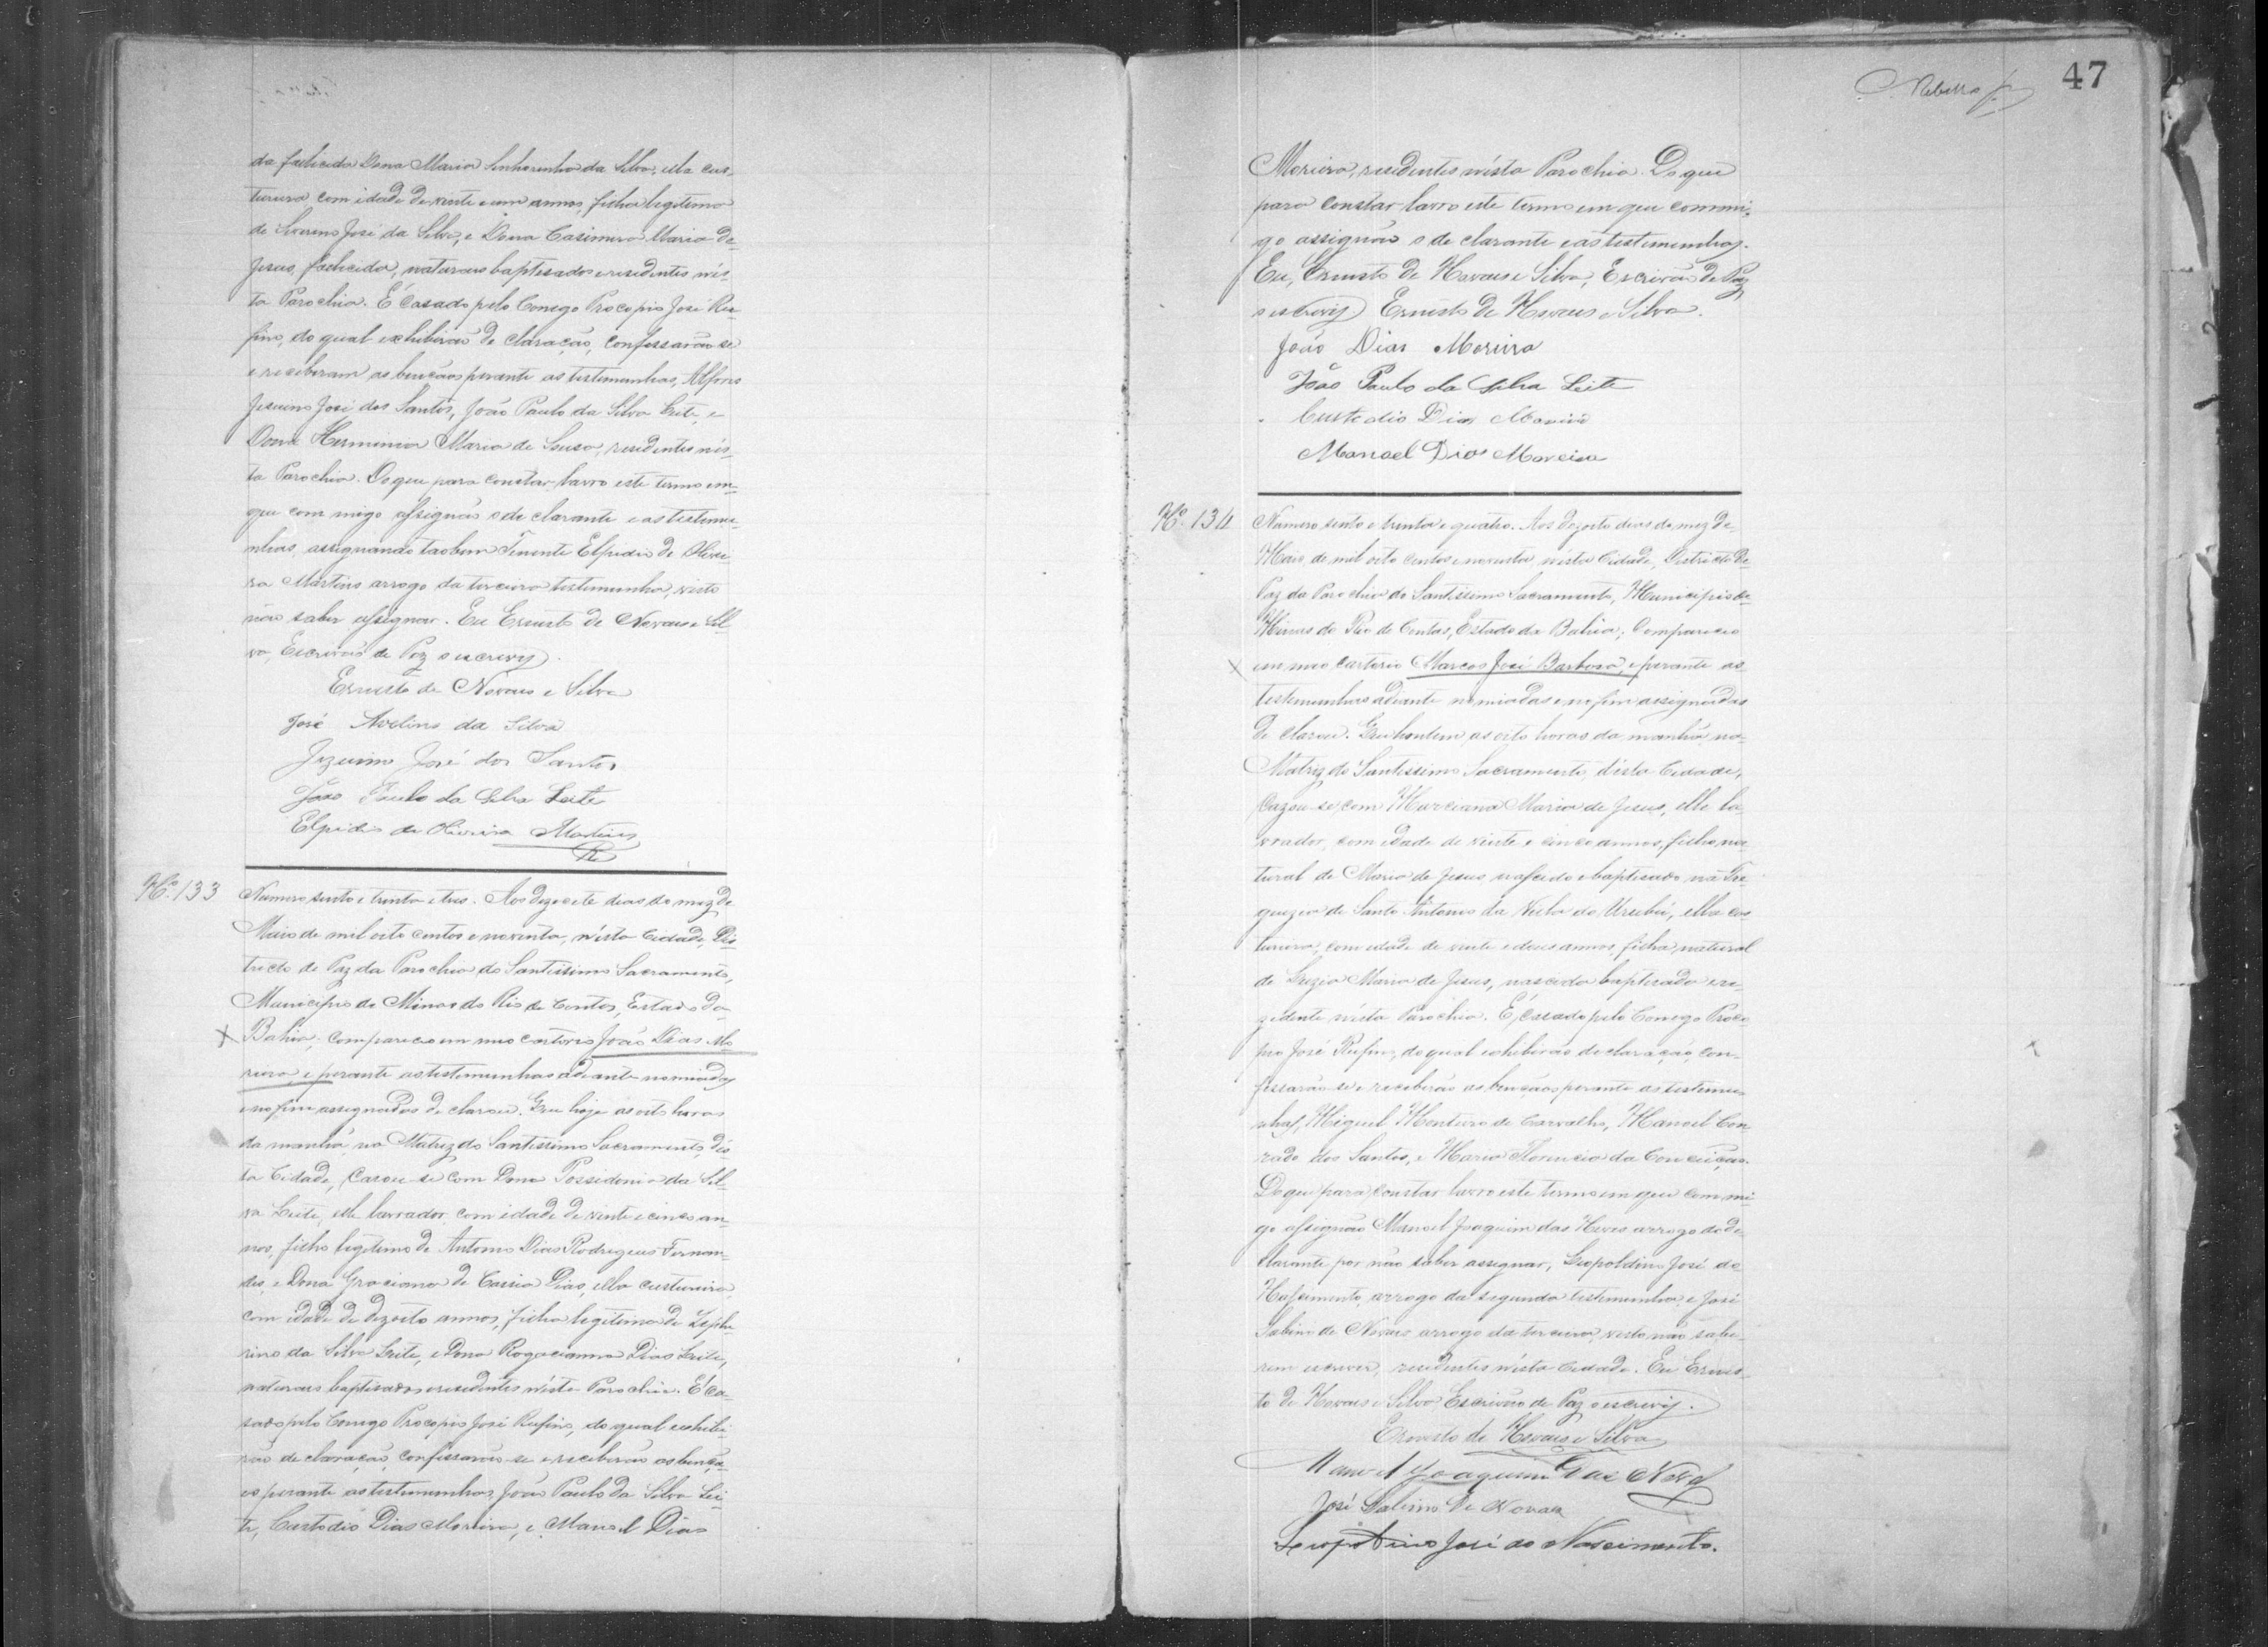 da fallecida Dona Maria Senhorinha da Silva, ella cus-
tureira com idade de vinte e um annos, filha legitima
de Severino José da Silva, e Dona Casimira Maria de
Jesus, fallecida, naturaes baptisados e residentes nés-
ta Parochia. É casado pelo Conego Procopio José Ru-
fino, do qual exhibirão declaração, confessarão-se
e receberam as bençãos perante as testemunhas, Alferes
Jesuino José dos Santos, João Paulo da Silva Leite, e
Dona Herminia Maria de Sousa, residentes nés-
ta Parochia. Do que para constar lavro este termo em
que com migo assignão o declarante e as testemu-
nhas, assignando tão bem Tenente Elpidio de Olivei-
ra Martins arrogo da terceira testemunha, visto
não saber assignar. Eu Ernesto de Novaes e Sil-
va, Escrivão de Paz o escrevy.
Ernesto de Novaes e Silva
José Avelino da Silva
Jezuino José dos Santos
João Paulo da Silva Leite
Elpidio de Oliveira Martins
Nº 133
Numero sento e trinta e tres. Aos dezecete dias do mez de
Maio de mil oito centos e noventa, nésta Cidade, Dis-
tricto de Paz da Parochia do Santissimo Sacramento,
Municipio de Minas do Rio de Contas, Estado da
Bahia; compareceo em meo cartorio João Dias Mo-
reira, e perante as testemunhas adeante nomiadas
e no fim assignados declarou. Que hoje ás oito horas
da manhã, na Matriz do Santissimo Sacramento, dés-
ta Cidade, Casou-se com Dona Possidonia da Sil-
va Leite, elle lavrador, com idade de vinte e cinco an-
nos, filho legitimo de Antonio Dias Rodrigues Fernan-
des, e Dona Graciana de Cassia Dias, ella custureira
com idade de dezoito annos, filha legitima de Zephe-
rino da Silva Leite, e Dona Rogacianna Dias Leite,
naturaes baptisados e residentes nésta Parochia. É ca-
sado pelo Conego Procopio José Rufino, do qual exhibi-
rão declaração, confessarão-se e receberão as bençã-
os perante as testemunhas, João Paulo da Silva Lei-
te, Custodio Dias Moreira, e Manoel Dias
47
Rebello
Moreira, residentes nésta Parochia. Do que
para constar lavro este termo em que commi-
go assignão o declarante e as testemunhas.
Eu, Ernesto de Novaes e Silva, Escrivão de Paz
o escrevy. Ernesto de Novaes e Silva.
João Dias Moreira
João Paulo da Silva Leite
Custodio Dias Moreira
Manoel Dias Moreira
Nº 134
Numero sento e trinta e quatro. Aos dezoito dias do mez de
Maio de mil oito centos e noventa, nésta Cidade, Districto de
Paz da Parochia do Santissimo Sacramento, Municipio de
Minas do Rio de Contas, Estado da Bahia; Compareceo
em meo cartorio Marcos José Barbosa, e perante as
testemunhas adiante nomiadas e no fim assignadas
declarou. Que hontem as oito horas da manhã, na
Matriz do Santissimo Sacramento, désta Cidade,
Cazou-se com Marciana Maria de Jesus, elle la-
vrador, com idade de vinte e cinco annos, filho na-
tural de Maria de Jesus, nascido e baptisado na Fre-
guezia de Santo Antonio da Villa do Urubú, ella cos-
tureira, com idade de vinte e dous annos, filha natural
de Luzia Maria de Jesus, nascida baptisada e re-
zidente nésta Parochia. É casado pelo Conego Proco-
pio José Rufino, do qual exhibirão declaração, con-
fessarão-se e receberão as bençãos perante as testemu-
nhas, Miguel Monteiro de Carvalho, Manoel Con-
rado dos Santos, e Maria Florencia da Conceição.
Do que para constar lavro este termo em que commi-
go assignão Manoel Joaquim das Neves arrogo do de-
clarante por não saber assignar, Leopoldino José do
Nascimento, arrogo da segunda testemunha e José
Sabino de Novaes arrogo da terceira, visto não sabe-
rem escrever, residentes nésta Cidade. Eu Ernes-
to de Novaes e Silva Escrivão de Paz o escrevy.
Ernesto de Novaes e Silva
Manoel Joaquim Das Neves
José Sabino de Novaes
Leopoldino José do Nascimento.